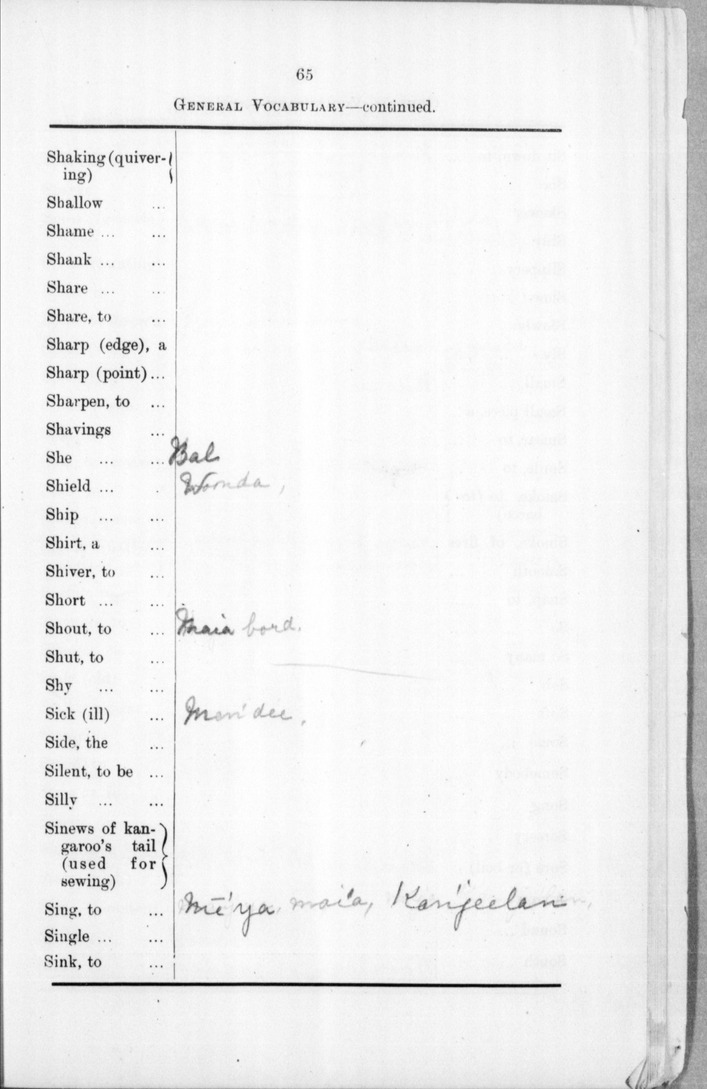 65
GENERAL VOCABULARY—continued.
Shaking (quiver-
ing)
Shallow ...
Shame ... ...
Shank ... ...
Share ... ...
Share, to ...
Sharp (edge), a
Sharp (point) ...
Sharpen, to ...
Shavings ...
She ... ... Bal
Shield ... ... Woonda,
Ship ... ...
Shirt, a ...
Shiver, to ...
Short ... ...
Shout, to ... maia bord.
Shut, to ...
Shy ... ...
Sick (ill) ... Men'dee,
Side, the ...
Silent, to be ...
Silly ... ...
Sinews of kan-
garoo's tail
(used for
sewing)
Sing, to ... Mē'ya, mai'a, Kan'jeelan
Single ... ...
Sink, to ...